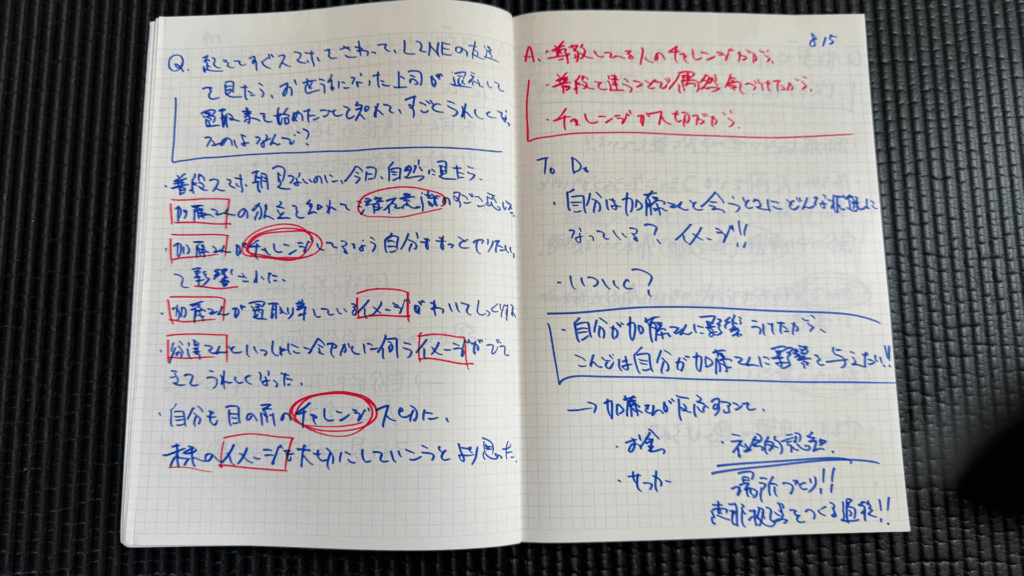 Q. 起きてすぐスマホでさわって、LINEの友達
で見たら、お世話になった上司が 独立して
買取業で始めたってこと知れて、すごくうれしくて、
なのはなんで?
・普段スマホ朝見ないのに、今日、自然に見たら、
加藤さんの独立を知れて 潜在意識のすごさ感じた。
・加藤さんがチャレンジしてるなら自分ももっとやりたい
って影響された。
・加藤さんが買取り業しているイメージがわいてしっくりする
さんといっしょに冷やかしに伺うイメージがでて
きてうれしくなった。
・自分も目の前のチャレンジ大切に、
未来のイメージを大切にしていこうとより思った。
8/5
A. ・尊敬している人のチャレンジだから。
・普段と違うことで偶然気づけたから。
・チャレンジが大切だから。
To Do
・自分は加藤さんと会うときにどんな状態に
なっている? イメージ!!
・いついく?
・自分が加藤さんに影響うけたから、
こんどは自分が加藤さんに影響を与えたい!!
→加藤さんが反応すること、
・お金 ・社会的
・サッカー 場所づくり!!
をつくる過程!!